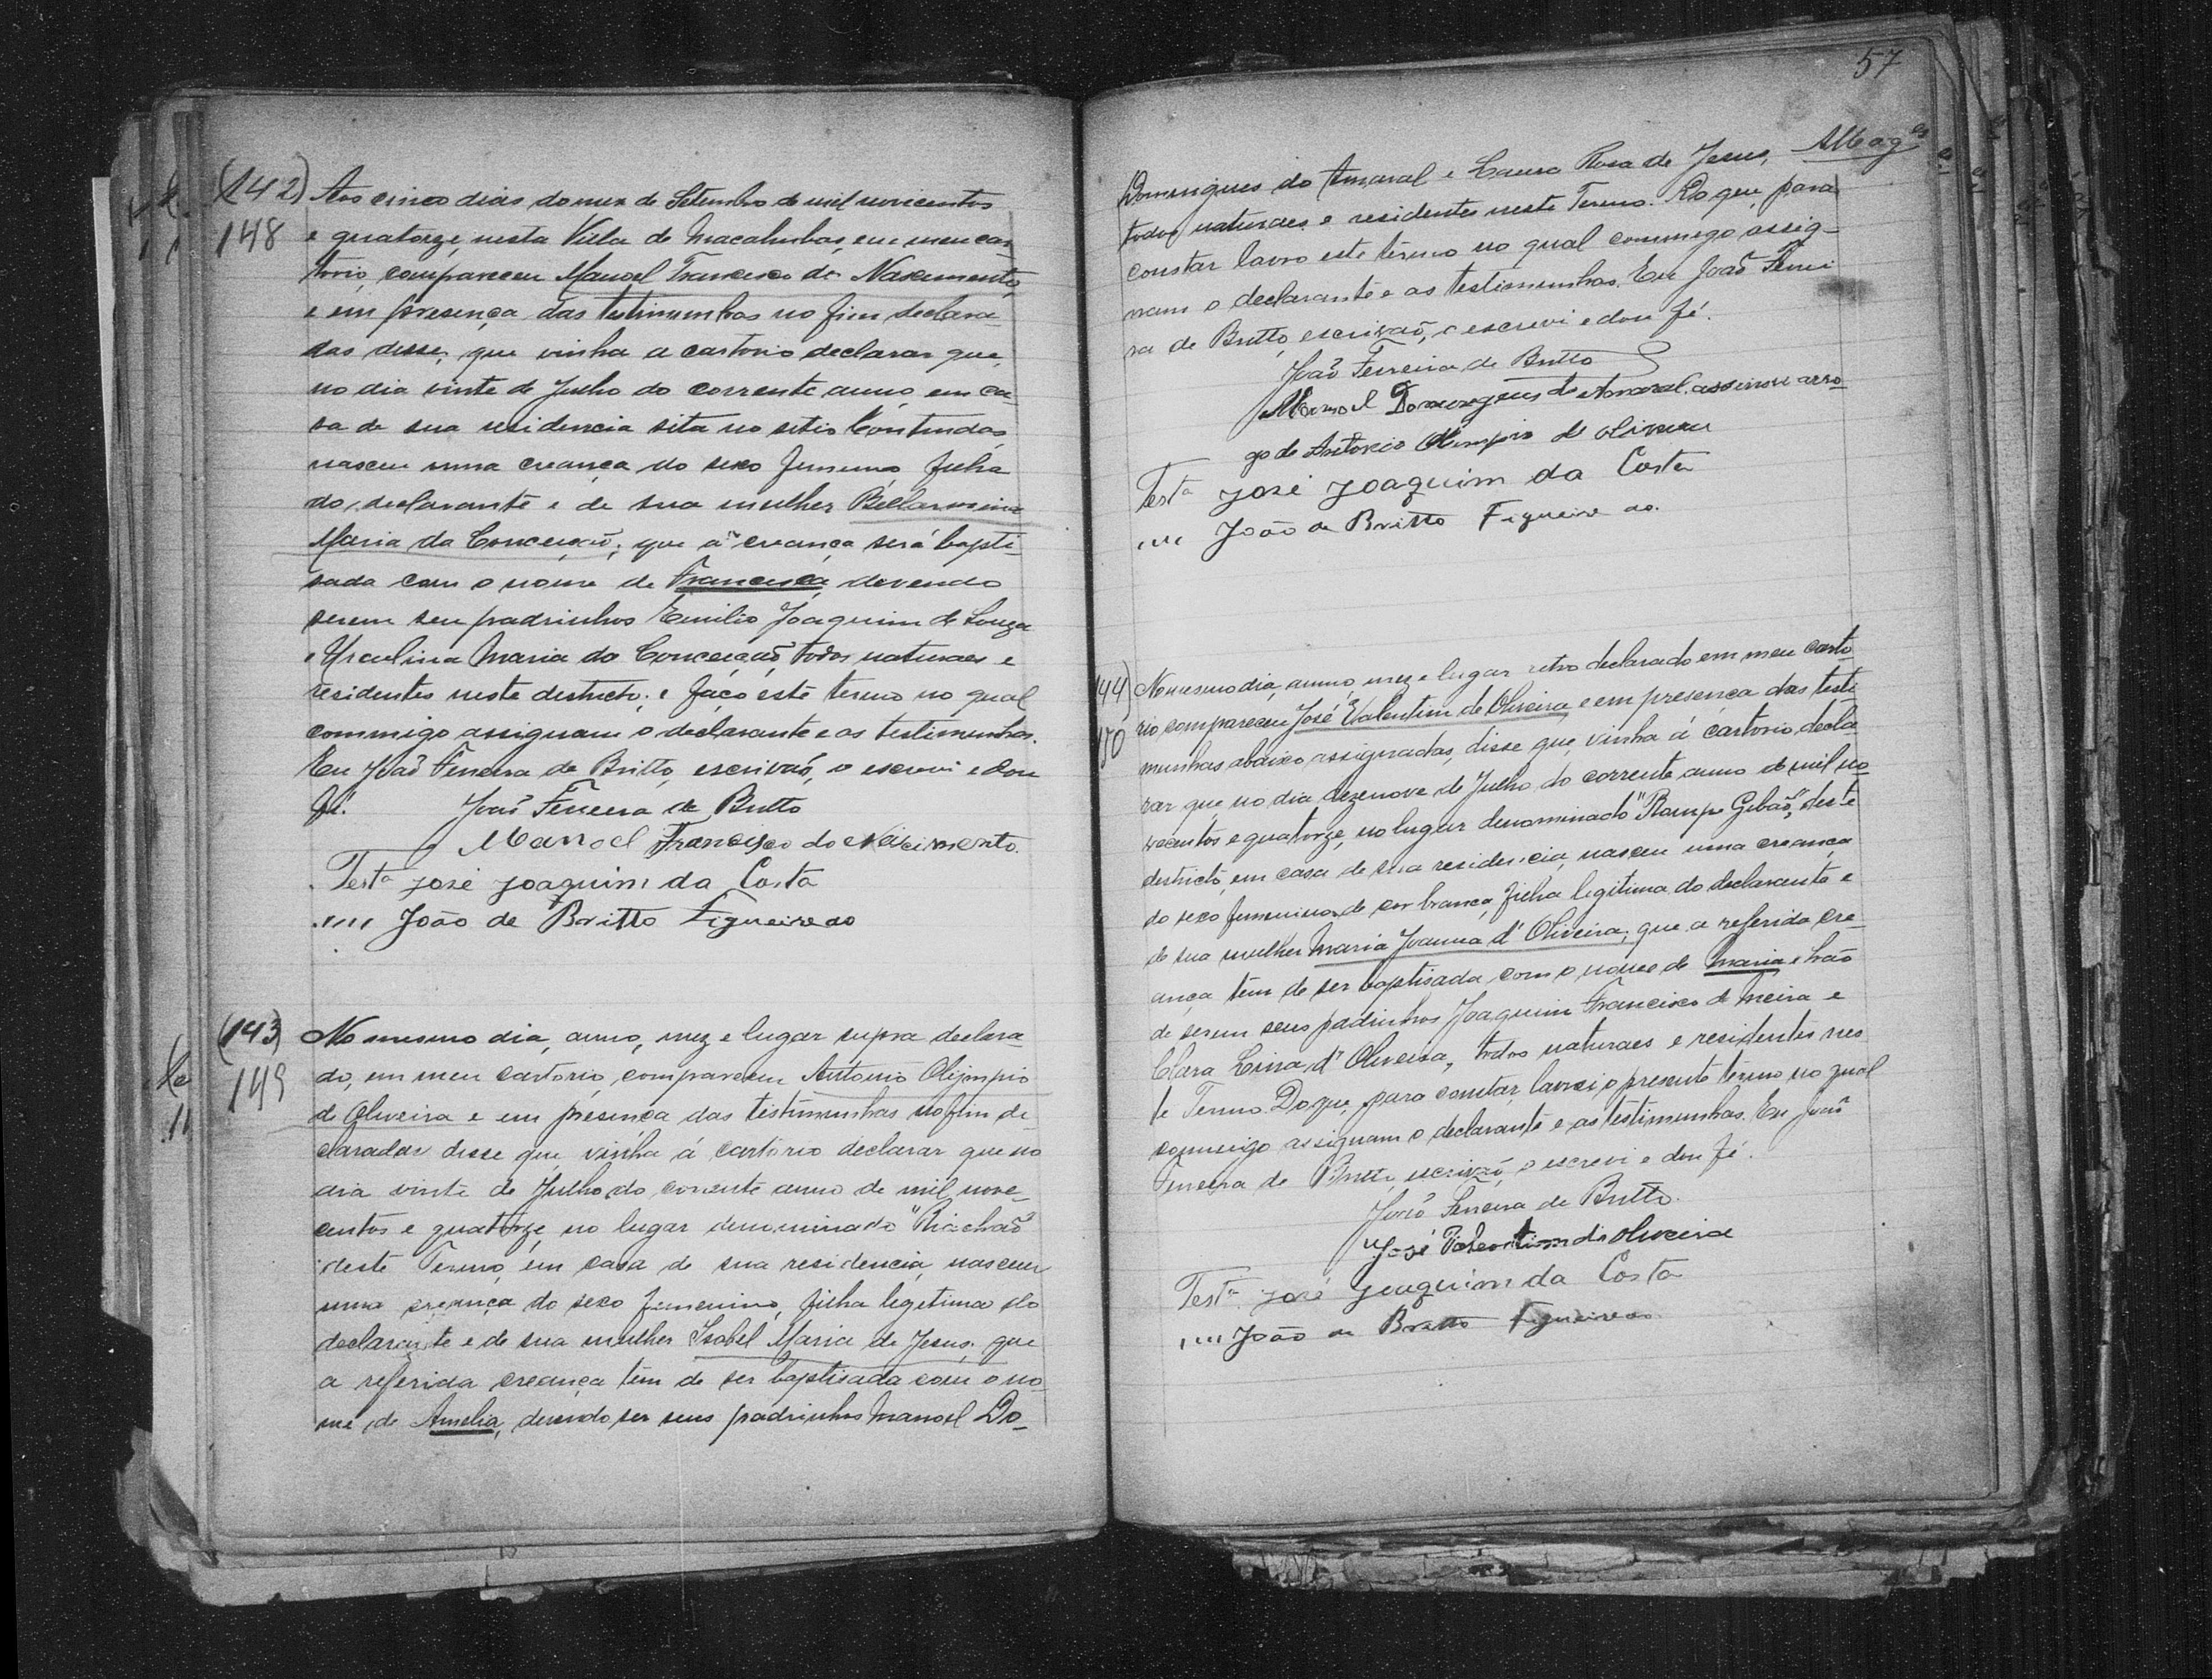 (142)
148
Aos cinco dias do mez de Setembro de mil novicentos
e quatorze, nesta Villa de Macahubas, em meu car
torio, compareceu Manoel Francisco do Nascimento,
e em presença das testimunhas no fim declara-
das disse, que vinha a cartorio declarar que,
no dia vinte de Julho do corrente anno, em ca-
sa de sua residencia sita no sitio Contendas,
nasceu uma creança do sexo femenino filha
do declarante e de sua mulher Bellarmina
Maria da Conceição; que a creança será bapti-
sada com o nome de Francisca, devendo
serem seu padrinhos Emilio Joaquim de Souza
e Urculina Maria da Conceição, todos naturaes e
residentes neste destricto; e faço este termo no qual
commigo assignam o declarante e as testimunhas.
Eu João Ferreira de Britto, escrivão, o escrevi e dou
fé. João Ferreira de Britto
Manoel Francisco do Nascimento.
Testa José Joaquim da Costa
,,,, João de Britto Figueiredo
(143)
149
No mesmo dia, anno, mez e lugar supra declara-
do, em meu cartorio, compareceu Antonio Olijmpio
de Oliveira e em presença das testimunhas no fim de-
claradas disse que vinha á cartorio declarar que no
dia vinte de Julho do corrente anno de mil nove-
centos e quatorze, no lugar denominado "Riachão"
deste Termo, em casa de sua residencia, nasceu
uma creança do sexo femenino, filha legitima do
declarante e de sua mulher Isabel Maria de Jesus; que
a referida creança têm de ser baptisada com o no-
me de Amelia, devendo ser seus padrinhos Manoel Do-
57
Domingues do Amaral e Laura Rosa de Jesus,
todos naturaes e residentes neste Termo. Do que, para
constar lavro este termo no qual commigo assig-
nam o declarante e as testimunhas. Eu João Ferrei
ra de Britto, escrivão, o escrevi e dou fé.
João Ferreira de Britto
Manoel Domingues do Amaral. assino a arro-
go de Antonio Olimpio de oliveira
Testa José Joaquim da Costa
,,,, João de Britto Figueiredo.
144)
150
No mesmo dia, anno, mez e lugar retro declarado em meu carto
rio compareceu José Valentim de Oliveira, e em presença das testi
munhas abaixo assignadas, disse que, vinha á cartorio decla
rar que, no dia dezenove de Julho do corrente anno de mil no-
vecentos e quatorze, no lugar denominado "Rampe Gibão", deste
destricto, em casa de sua residencia, nasceu uma creança
do sexo femenino, de cor branca, filha legitima do declarante e
de sua mulher Maria Joanna d' Oliveira; que a referida cre-
ança têm de ser baptisada com o nome de Maria e hão
de serem seus padrinhos Joaquim Francisco de Meira e
Clara d' Oliveira, todos naturaes e residentes nes
te Termo. Do que, para constar, lavrei o presente termo no qual
commigo assignam o declarante e as testimunhas. Eu João
Ferreira de Britto, escrivão, o escrevi e dou fé.
João Ferreira de Britto.
José Valentim de oliveira
Testa José Joaquim da Costa
,,,, João de Britto Figueiredo